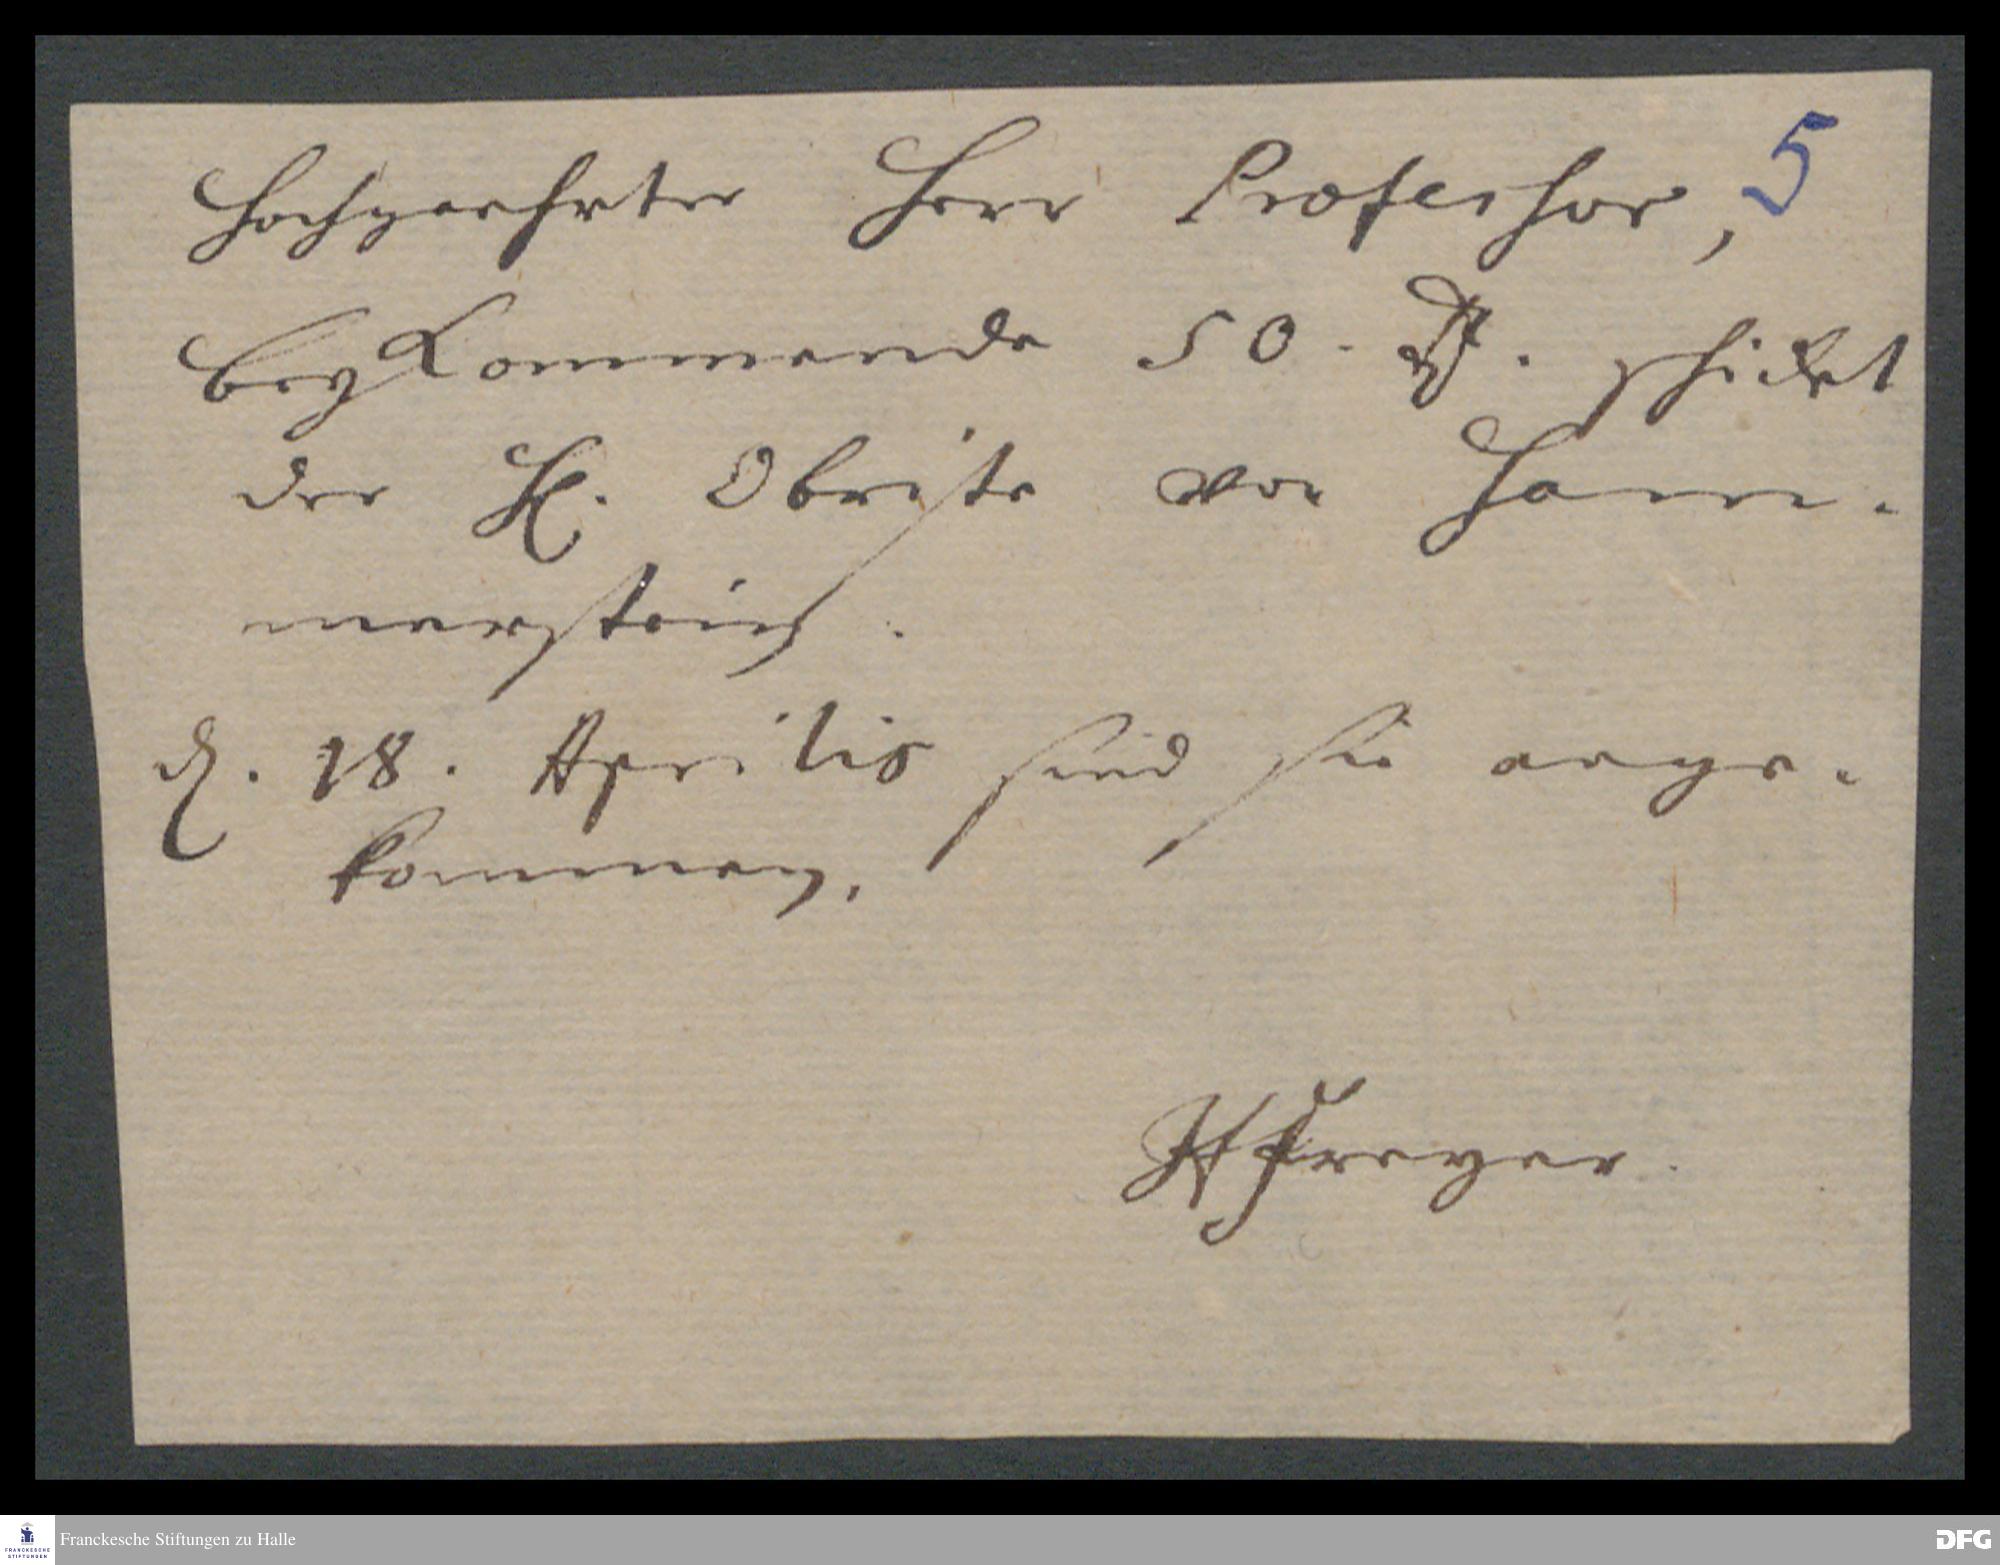 Hochgeehrter Herr Professor, 5
beykommende 50. Rthlr. schicket
der H. Obriste von Ham-
merstein.
d. 18. Aprilis sind sie ange-
kommen.
HFreyer.
FRANCKESCHE STIFTUNGEN
Franckesche Stiftungen zu Halle
DFG